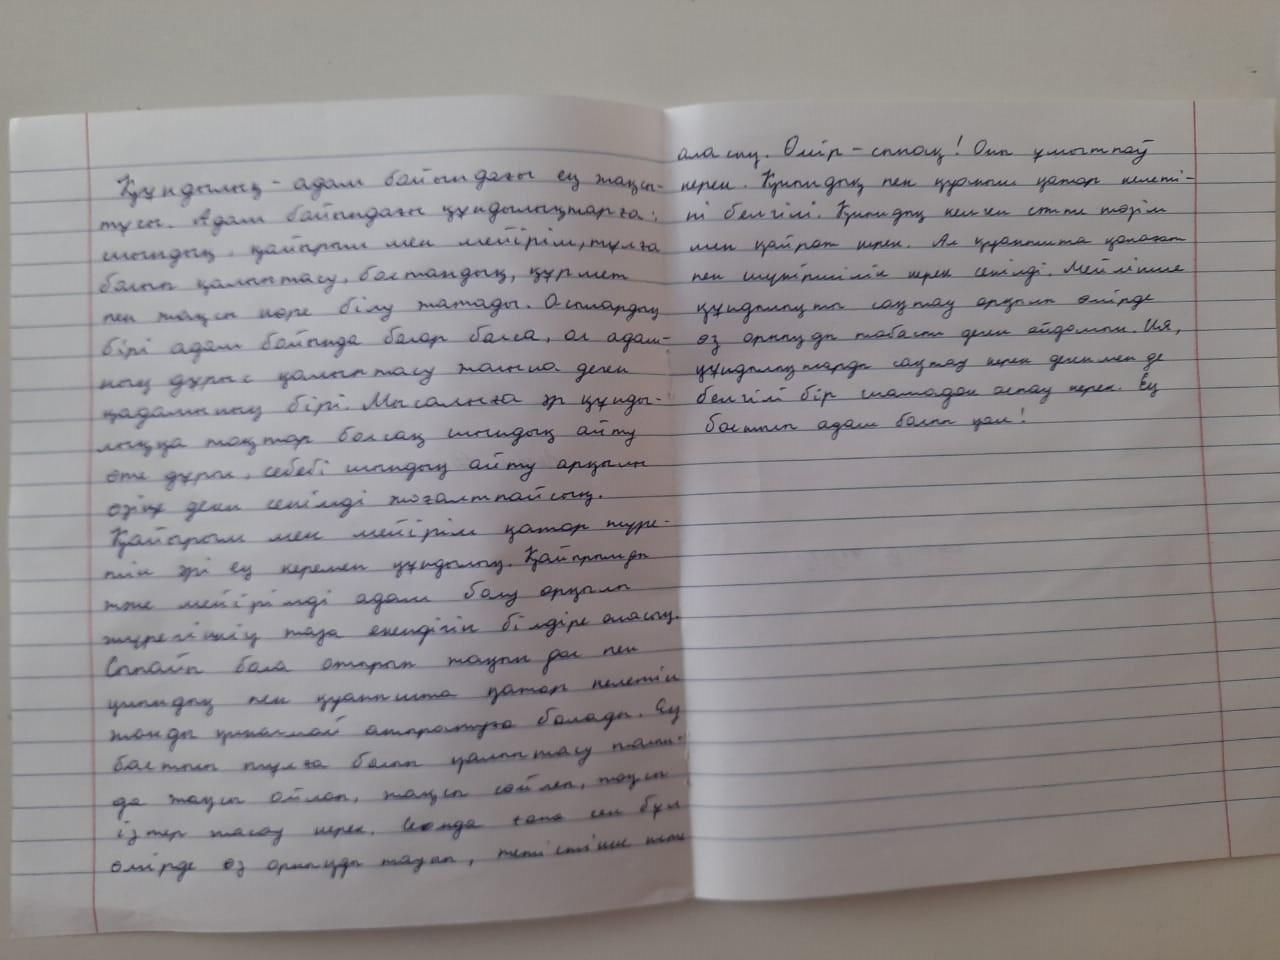 Құндылық - адам бойындағы ең жақсы-
тұсы. Адам бойындағы құндылықтарға:
шындық, қайырым мен мейірім, тұлға
болып қалыптасу, бостандық, құрмет
пен жақсы көре білу жатады. Осылардың
бірі адам бойында болар болса, ол адам-
ның дұрыс қалыптасу жолына деген
қадамының бірі. Мысалыға әр құнды-
лыққа тоқтар болсақ шындық айту
өте дұрыс, себебі шындық айту арқылы
өзіңе деген сенімді жоғалтпайсың.
Қайырым мен мейірім қатар жүре-
тін әрі ең керемет құндылық. Қайырымды
және мейірімді адам болу арқылы
жүрегіңнің таза екендігін білдіре аласың.
Сыпайы бола отырып жақын дос пен
қиындық пен қуанышта қатар келетін
жанды қинамай атқаруға болады. Ең
бастысы тұлға болып қалыптасу жолын-
да жақсы ойлап, жақсы сөйлеп, жақсы
істер жасау керек. Сонда ғана сен бұл
өмірде өз орныңды тауып, жетістікке жете
аласың. Өмір - сынақ! Оны ұмытпау
керек. Қиындық пен қуаныш қатар келеті-
ні белгілі. Қиындық келген сәтте төзім
мен қайрат керек. Ал қуанышта қанағат
пен шүкіршілік керек секілді. Мейлінше
құндылықты сақтау арқылы өмірде
өз орныңды табасың деген ойдамын. Ия,
құндылықтарды сақтау керек дегенмен де
белгілі бір шамадан аспау керек. Ең
бастысы адам болып қал!